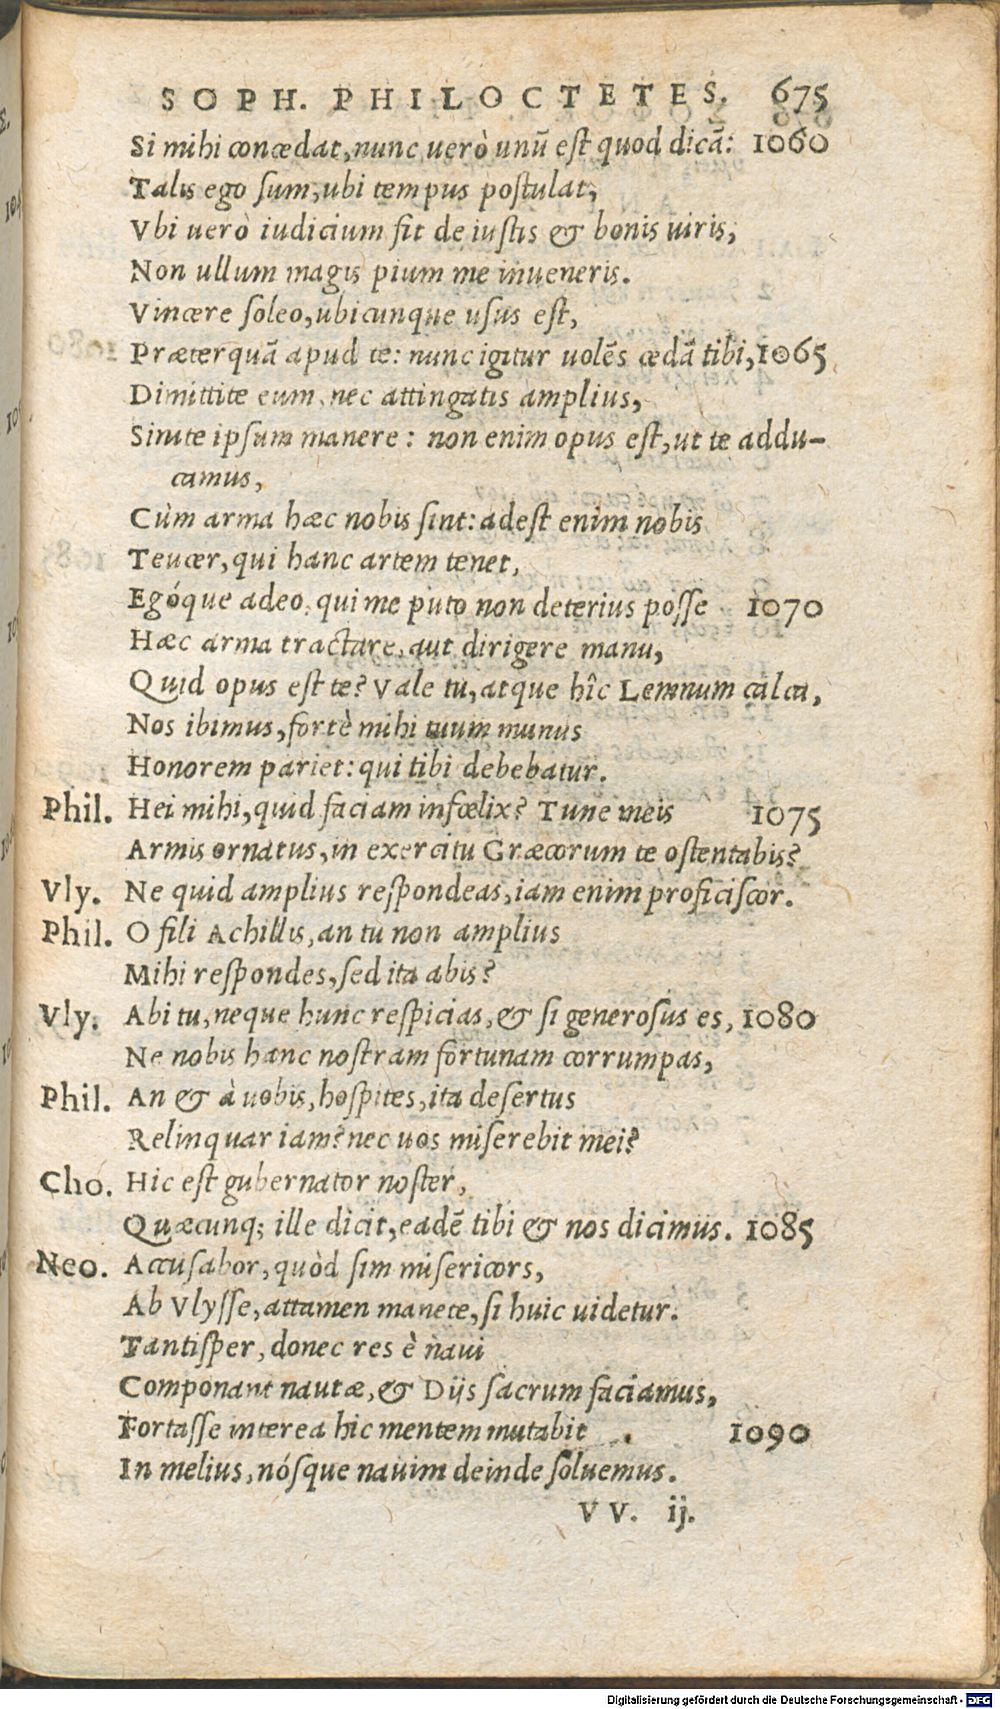 SOPH. PHILOCTETES. 675
Si mihi concedat, nunc uerò unũ est quod dicã: 1060
Talis ego sum, ubi tempus postulat,
Vbi uerò iudicium fit de iustis & bonis uiris,
Non ullum magis pium me inueneris.
Vincere soleo, ubicunque usus est,
Præterquã apud te: nunc igitur uolẽs cedã tibi, 1065
Dimittite eum, nec attingatis amplius,
Sinite ipsum manere: non enim opus est, ut te addu-
camus,
Cùm arma hæc nobis sint: adest enim nobis
Teucer, qui hanc artem tenet,
Egóque adeo, qui me puto non deterius posse 1070
Hæc arma tractare, aut dirigere manu,
Quid opus est te? Vale tu, atque hîc Lemnum calca,
Nos ibimus, fortè mihi tuum munus
Honorem pariet: qui tibi debebatur.
Phil. Hei mihi, quid faciam infœlix? Tune meis 1075
Armis ornatus, in exercitu Græcorum te ostentabis?
Vly. Ne quid amplius respondeas, iam enim proficiscor.
Phil. O fili Achillis, an tu non amplius
Mihi respondes, sed ita abis?
Vly. Abi tu, neque hunc respicias, & si generosus es, 1080
Ne nobis hanc nostram fortunam corrumpas,
Phil. An & à uobis, hospites, ita desertus
Relinquar iam? nec uos miserebit mei?
Cho. Hic est gubernator noster,
Quæcunq; ille dicit, eadẽ tibi & nos dicimus. 1085
Neo. Accusabor, quòd sim misericors,
Ab Vlysse, attamen manete, si huic uidetur.
Tantisper, donec res è naui
Componant nautæ, & Diis sacrum faciamus,
Fortasse interea hic mentem mutabit 1090
In melius, nósque nauim deinde soluemus.
VV. ij.
Digitalisierung gefördert durch die Deutsche Forschungsgemeinschaft - DFG